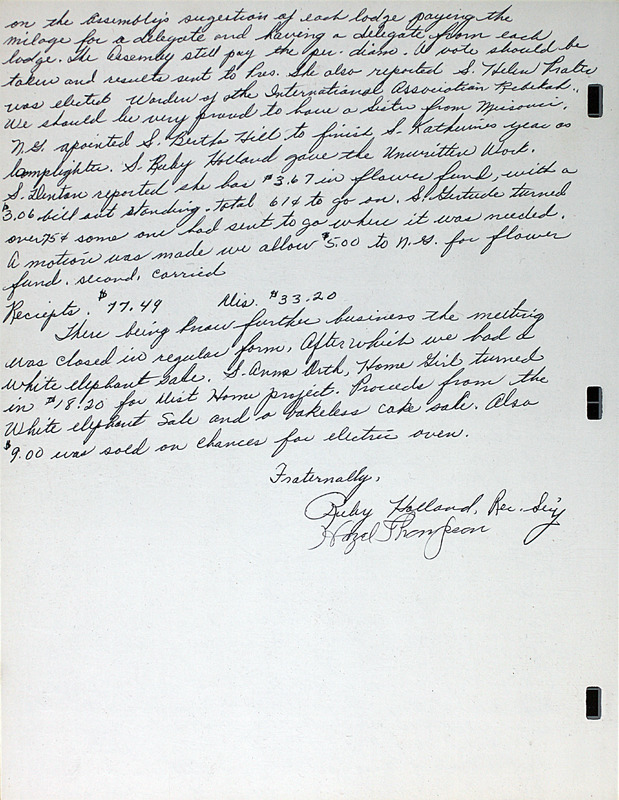 on the Assembly's sugestion of each lodge paying the
milage for a delegate and having a delegate from each
lodge. The Assembly still pay the per. diam. A vote should be
taken and results sent to Pres. She also reported S. Helen Prater
was elected Warden of the International Association Rebekah..
We should be very proud to have a Sister from Missouri.
N.G. apointed S. Bertha Hill to finish S. Katherines year as
lamplighter. S. Ruby Holland gave the Unwritten Work.
S. Denton reported she has $3.67 in flower fund, with a
$3.06 bill out standing. total 61¢ to go on. S. Gertrude turned
over 75¢ some one had sent to go where it was needed.
A motion was made we allow $5.00 to N.G. for flower
fund. second, carried
Reciepts. $77.49 Dis. $33.20
There being know further business the meeting
was closed in regular form. After which we had a
White elephant Sale. S. Anna Orth, Home Girl, turned
in $18.20 for Dist Home project. Proceeds from the
White elephant Sale and a bakeless cake sale. Also
$9.00 was sold on chances for electric oven.
Fraternally,
Ruby Holland, Rec. Sec'y
Hazel Thompson